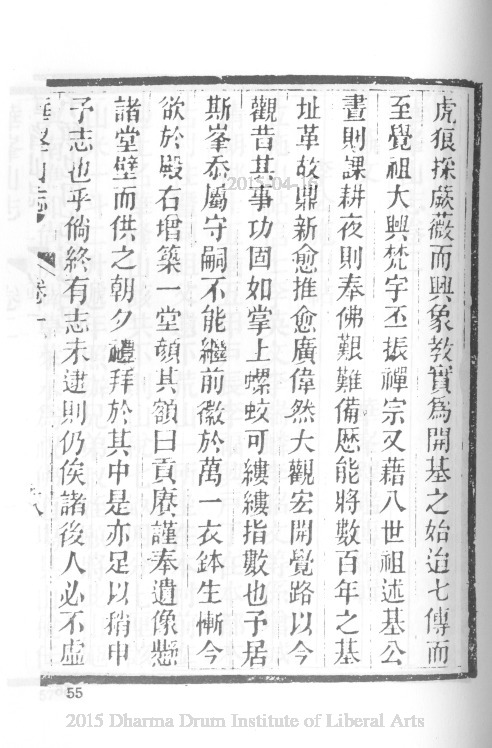 虎狼採蕨薇而興象教實為開基之始迨七傳而
至覺祖大興梵宇丕振禪宗又藉八世祖述基公
晝則課耕夜則奉佛艱難備歷能將數百年之基
址革故鼎新愈推愈廣偉然大觀宏開覺路以今
觀昔其事功固如掌上螺蚊可縷縷指數也予居
斯峯忝屬守嗣不能繼前徽於萬一衣鉢生慚今
欲於殿右增築一堂頟其額曰貢賡謹奉遺像懸
諸堂壁而供之朝夕禮拜於其中是亦足以稍申
予志也乎倘終有志未逮則仍俟諸後人必不虛
峯山志 卷一 八
2015-04-
55
2015 Dharma Drum Institute of Liberal Arts